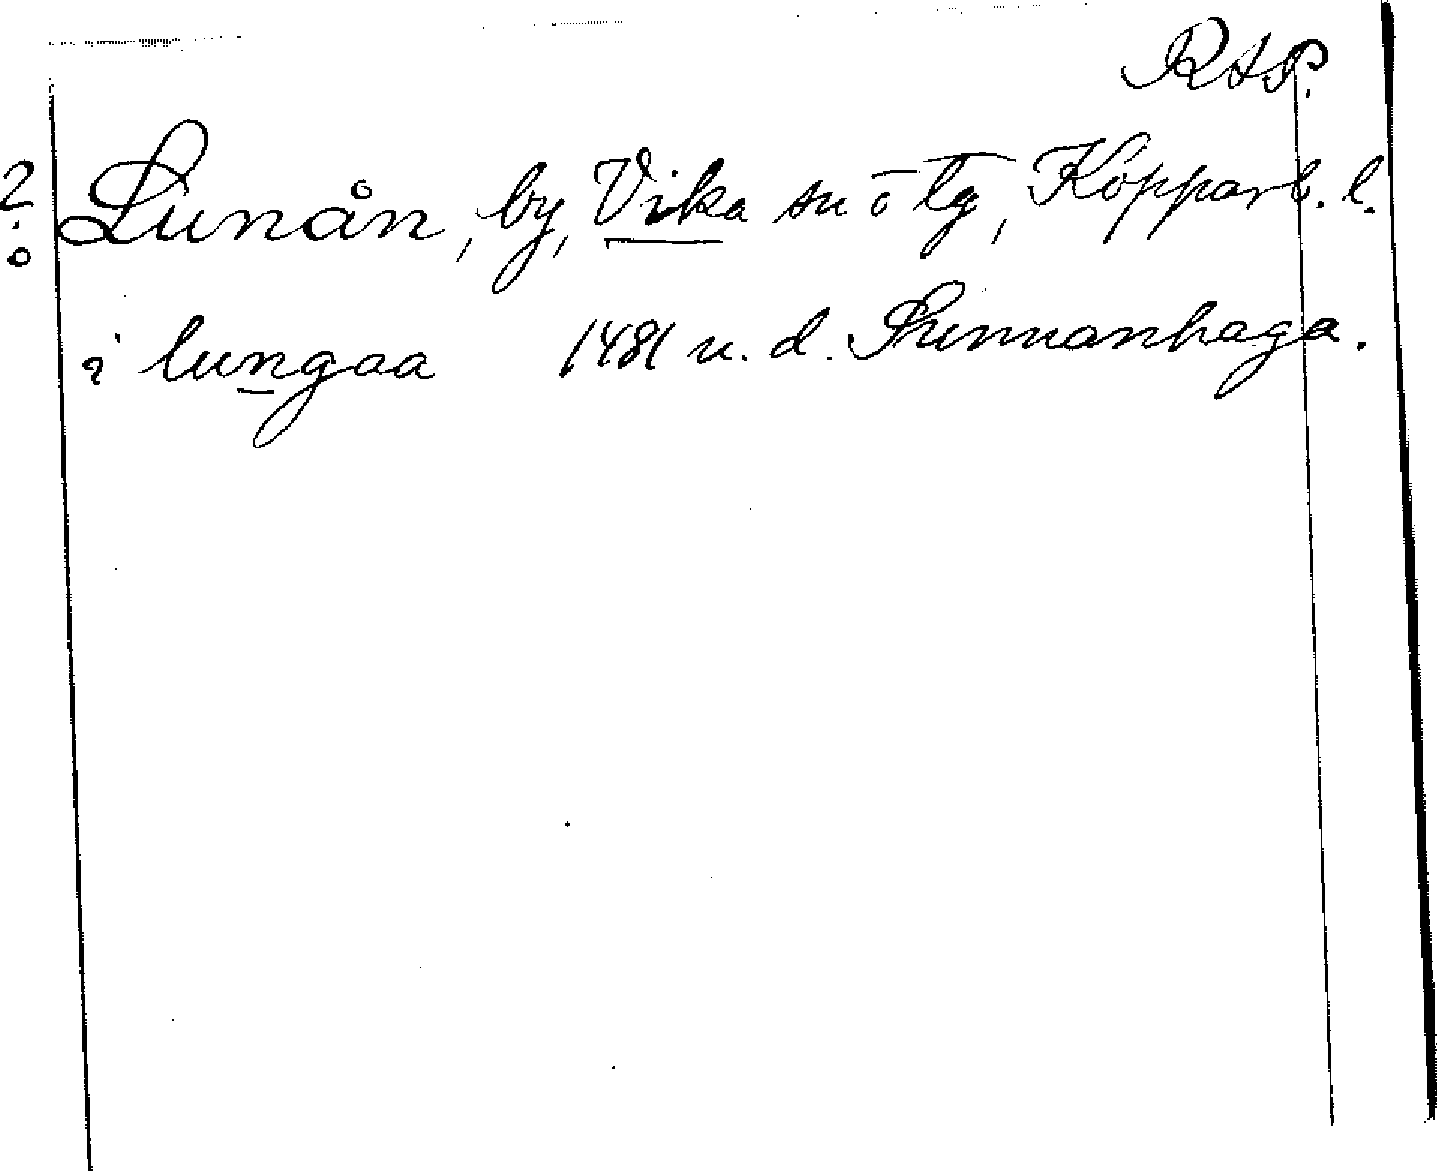 RAP.
? Lunån, by, Vika sn o tg, Kopparb. l.
i lungaa 1481 u. d. Sunnanhaga.